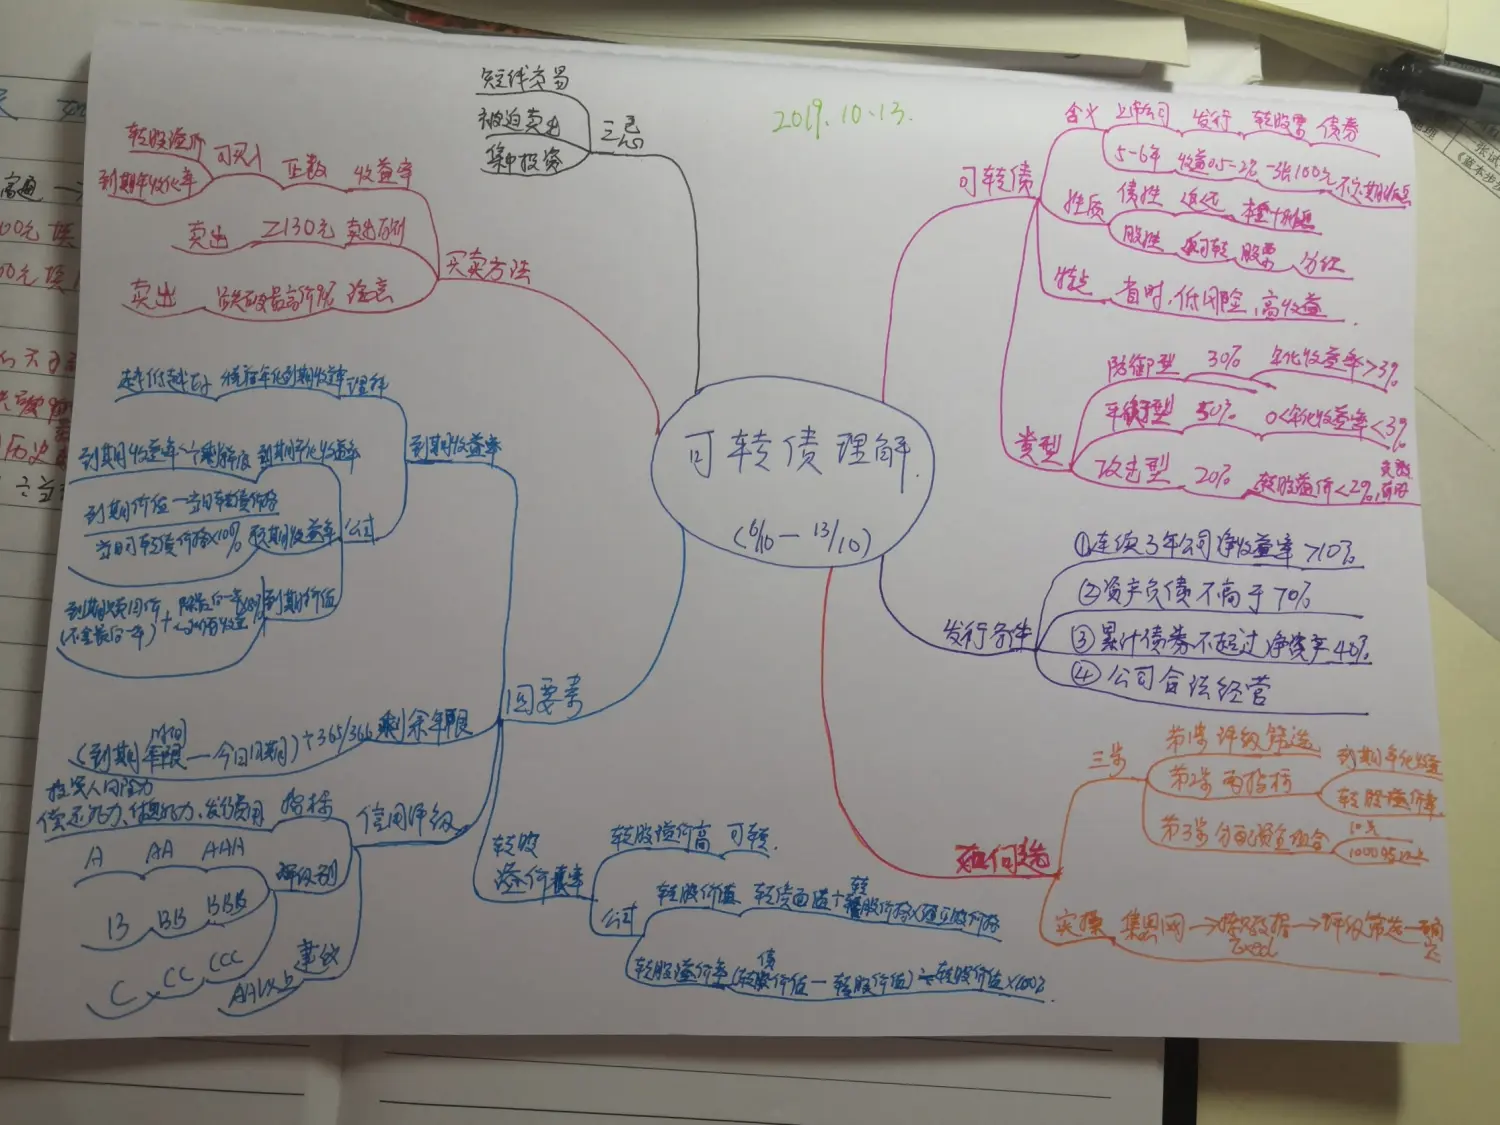 2019.10.13.
可转债理解.
(6/10—13/10)
可转债
含义 上市公司 发行 转股票 债券
5-6年 收益0.5-2% 一张100元 不定期付息
性质 债性 偿还 本金+利息
股性 可转 股票 分红
特点 省时、低风险、高收益.
类型
防御型 30% 年化收益率>3%
平衡型 50% 0<年化收益率<3%
攻击型 20% 转股溢价<2%
发行条件
①连续3年公司净收益率>10%
②资产负债不高于70%
③累计债券不超过净资产40%
④公司合法经营
如何选
三步
第1步 评级筛选
第2步 两指标
到期年化收益
转股溢价率
第3步 分配资金组合
10只
1000
实操 集思录网→ 数据→评级筛选—
Excel
转股
溢价率
转股溢价高 可转.
公式
转股价值 转债面值÷转股价格×正股价格
转股溢价率 (转债价值—转股价值)÷转股价值×100%
四要素
到期收益率
越低越好 债券年化到期收益率 理解
公式
到期收益率 到期年化收益率
到期价值—当日转债价格
当日可转债价格×100% 预期收益率
到期赎回价
(不含最后一年)+ 到期价值
(到期年限—今日日期)÷365/366 剩余年限
信用评级
投资人
偿还能力、发行费用 指标
A AA AAA
B BB BBB
C CC CCC
评级别
AA以上
买卖方法
转股溢价
到期年化率 可买入 正数 收益率
卖出 ≥130元 卖出
卖出 最高价 注意
三忌
短线交易
被迫卖出
集中投资